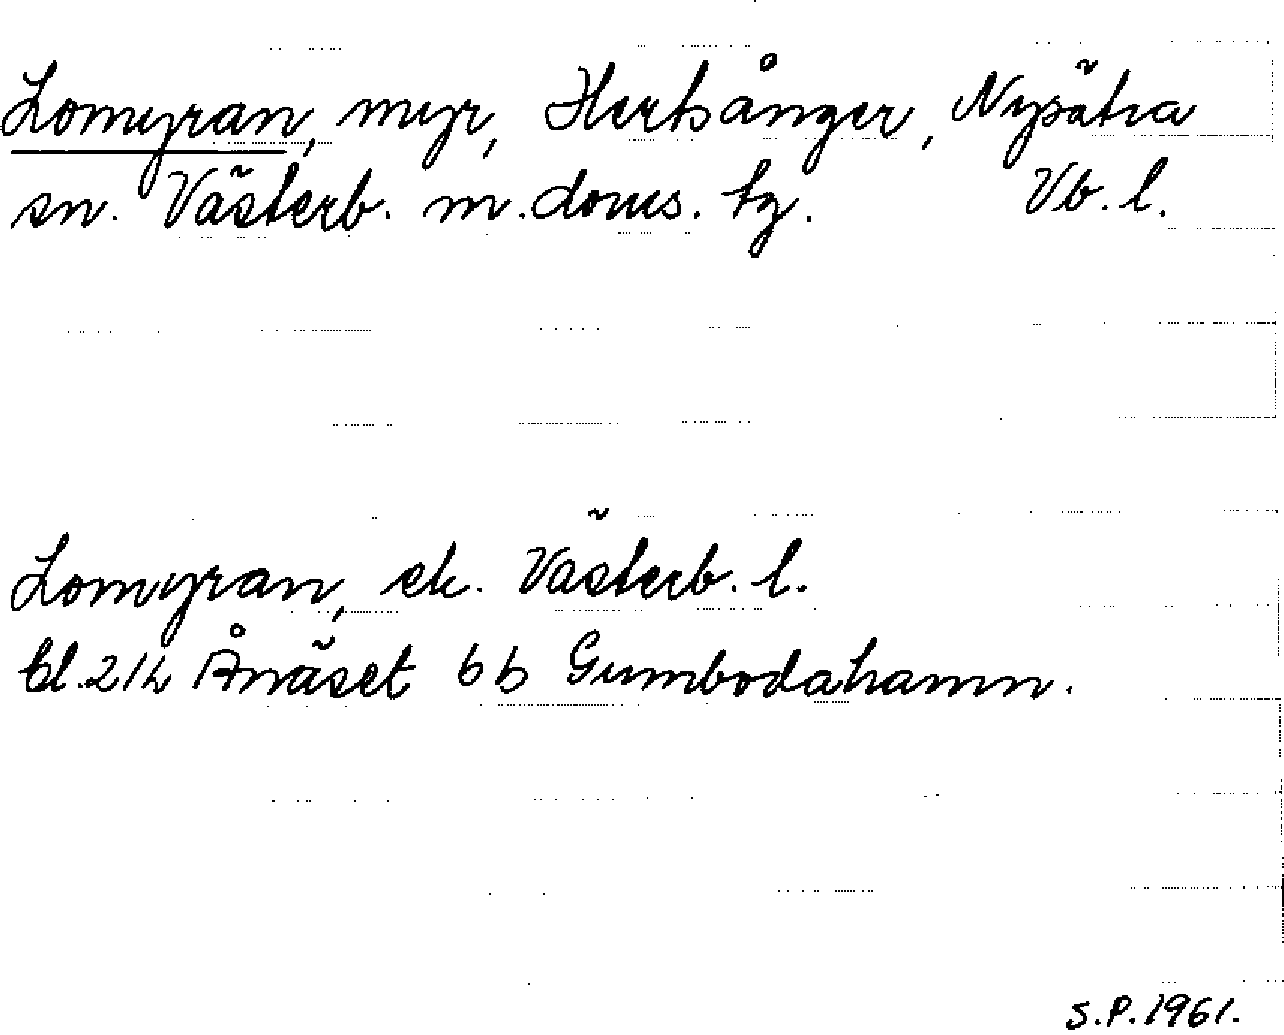 Lomyran, myr, Hertsånger, Nysätra
sn. Västerb. m. doms. tg. Vb. l.
Lomyran, ek. Västerb. l.
bl. 21h Ånäset 6b Gumbodahamn.
S.P. 1961.